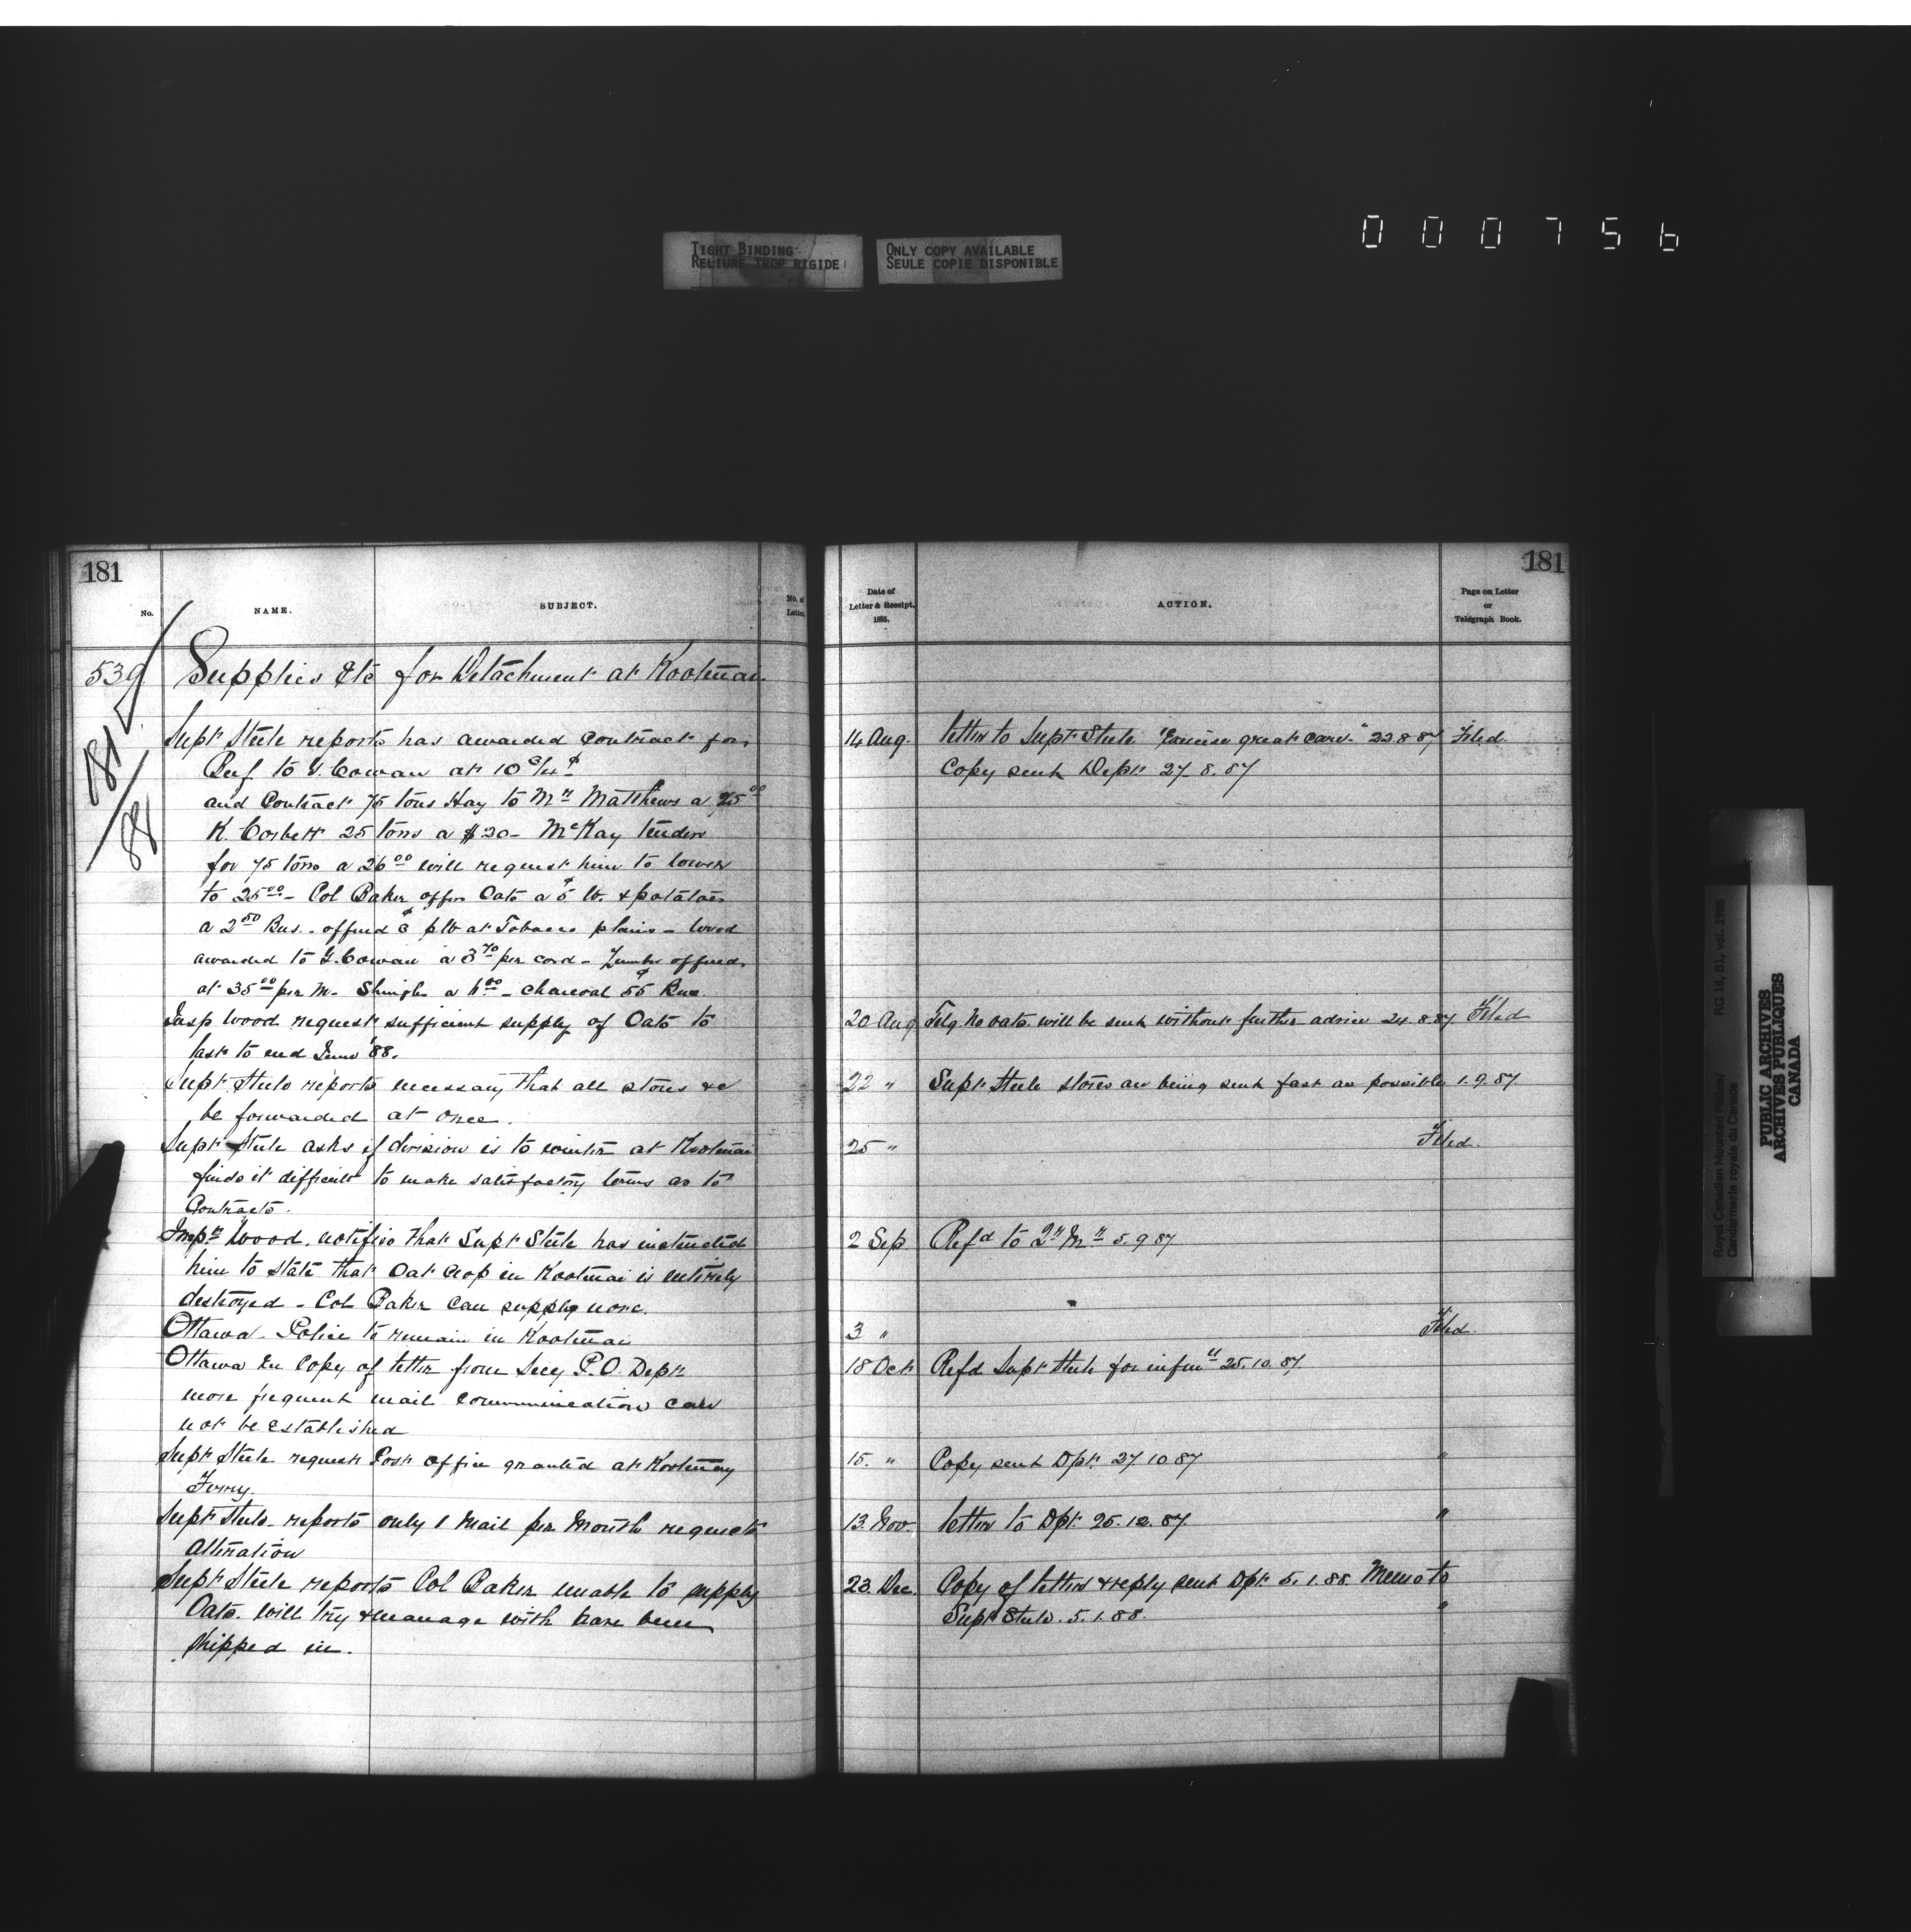 000756
TIGHT BINDING
RELIURE TROP RIGIDE
ONLY COPY AVAILABLE
SEULE COPIE DISPONIBLE
181
No.
NAME.
SUBJECT.
No. of
Letter.
539
181
88
Supplies etc for Detachment at Kootenai
Supt Steele reports has awarded Contract for
Beef to G. Cowan at 10
and Contract 75 tons Hay to Mr Matthews a 25 00
K. Corbett 25 tons a $20 - McKay tenders
for 75 tons a 26 00 will request him to lower
to 25 00 - Col Baker offers Oats a 5 ¢ lb. & potatoes
a 2 50 Bus. - offered ¢ p lb at Tobacco plains - Wood
awarded to G. Cowan a 3 70 per cord - Lumber offered
at 35 00 per M. Shingles a 6 00 - Charcoal 55 ¢ Bus
Insp Wood request sufficient supply of Oats to
last to end June '88.
Supt. Steele reports necessary that all stores &c
be forwarded at once.
Supt Steele asks if division is to winter at Kootenai
finds it difficult to make satisfactory terms as to
Contracts.
Inspr Wood. notifies that Supt Steele has instructed
him to state that Oat crop in Kootenai is entirely
destroyed - Col Baker can supply none.
Ottawa. Police to remain in Kootenai
Ottawa En Copy of letter from Secy P.O. Dept.
more frequent mail communication can
not be established
Supt Steele request Post office granted at Kootenay
Ferry.
Supt Steele reports only 1 Mail per Month requests
alteration
Supt Steele reports Col Baker unable to supply
Oats. will try & manage with have been
shipped in.
181
Date of
Letter & Receipt.
1885.
ACTION.
Page on Letter
or
Telegraph Book.
14 Aug. letter to Supt Steele "Exercise great care" 22.8.87 Filed
Copy sent Dept. 27.8.87
20 Aug Telg. No oats will be sent without further advice 24.8.87 Filed
22 " Supt Steele stores are being sent fast as possible 1.9.87
25 " Filed.
2 Sep. Refd to Qr Mr 5.9.87
3 " Filed.
18 Oct Refd Supt Steele for infmn 25.10.87
15. " Copy sent Dpt. 27.10.87 "
13. Nov. letter to Dpt. 25.12.87. "
23. Dec. Copy of letter & reply sent Dpt. 5.1.88. Memo to
Supt Steele. 5.1.88. "
Royal Canadian Mounted Police/ RG 18, B1, vol. 1986
Gendarmerie royale du Canada
PUBLIC ARCHIVES
ARCHIVES PUBLIQUES
CANADA